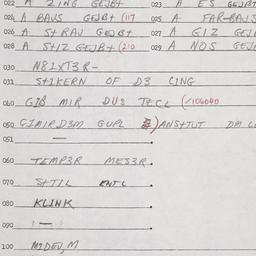 022 A ZING GEJBT 023 A ES GEJBT
024 A BAVS GEJBT (117 025 A FAR-BAJS
026 A STRAJ GEJBT 027 A GIZ GEJ
028 A STIZ GEJBT (210 029 A NOS GEJ
030 N81XT3R-
031 STIKERN OF D3 CING
040 GIB MIR DUS TECL (-106040
050 ANSTTUT DM
051 —
060 TEMP3R MES3R.
070 STIL ENTL
080 KLINK
090 1 —
100